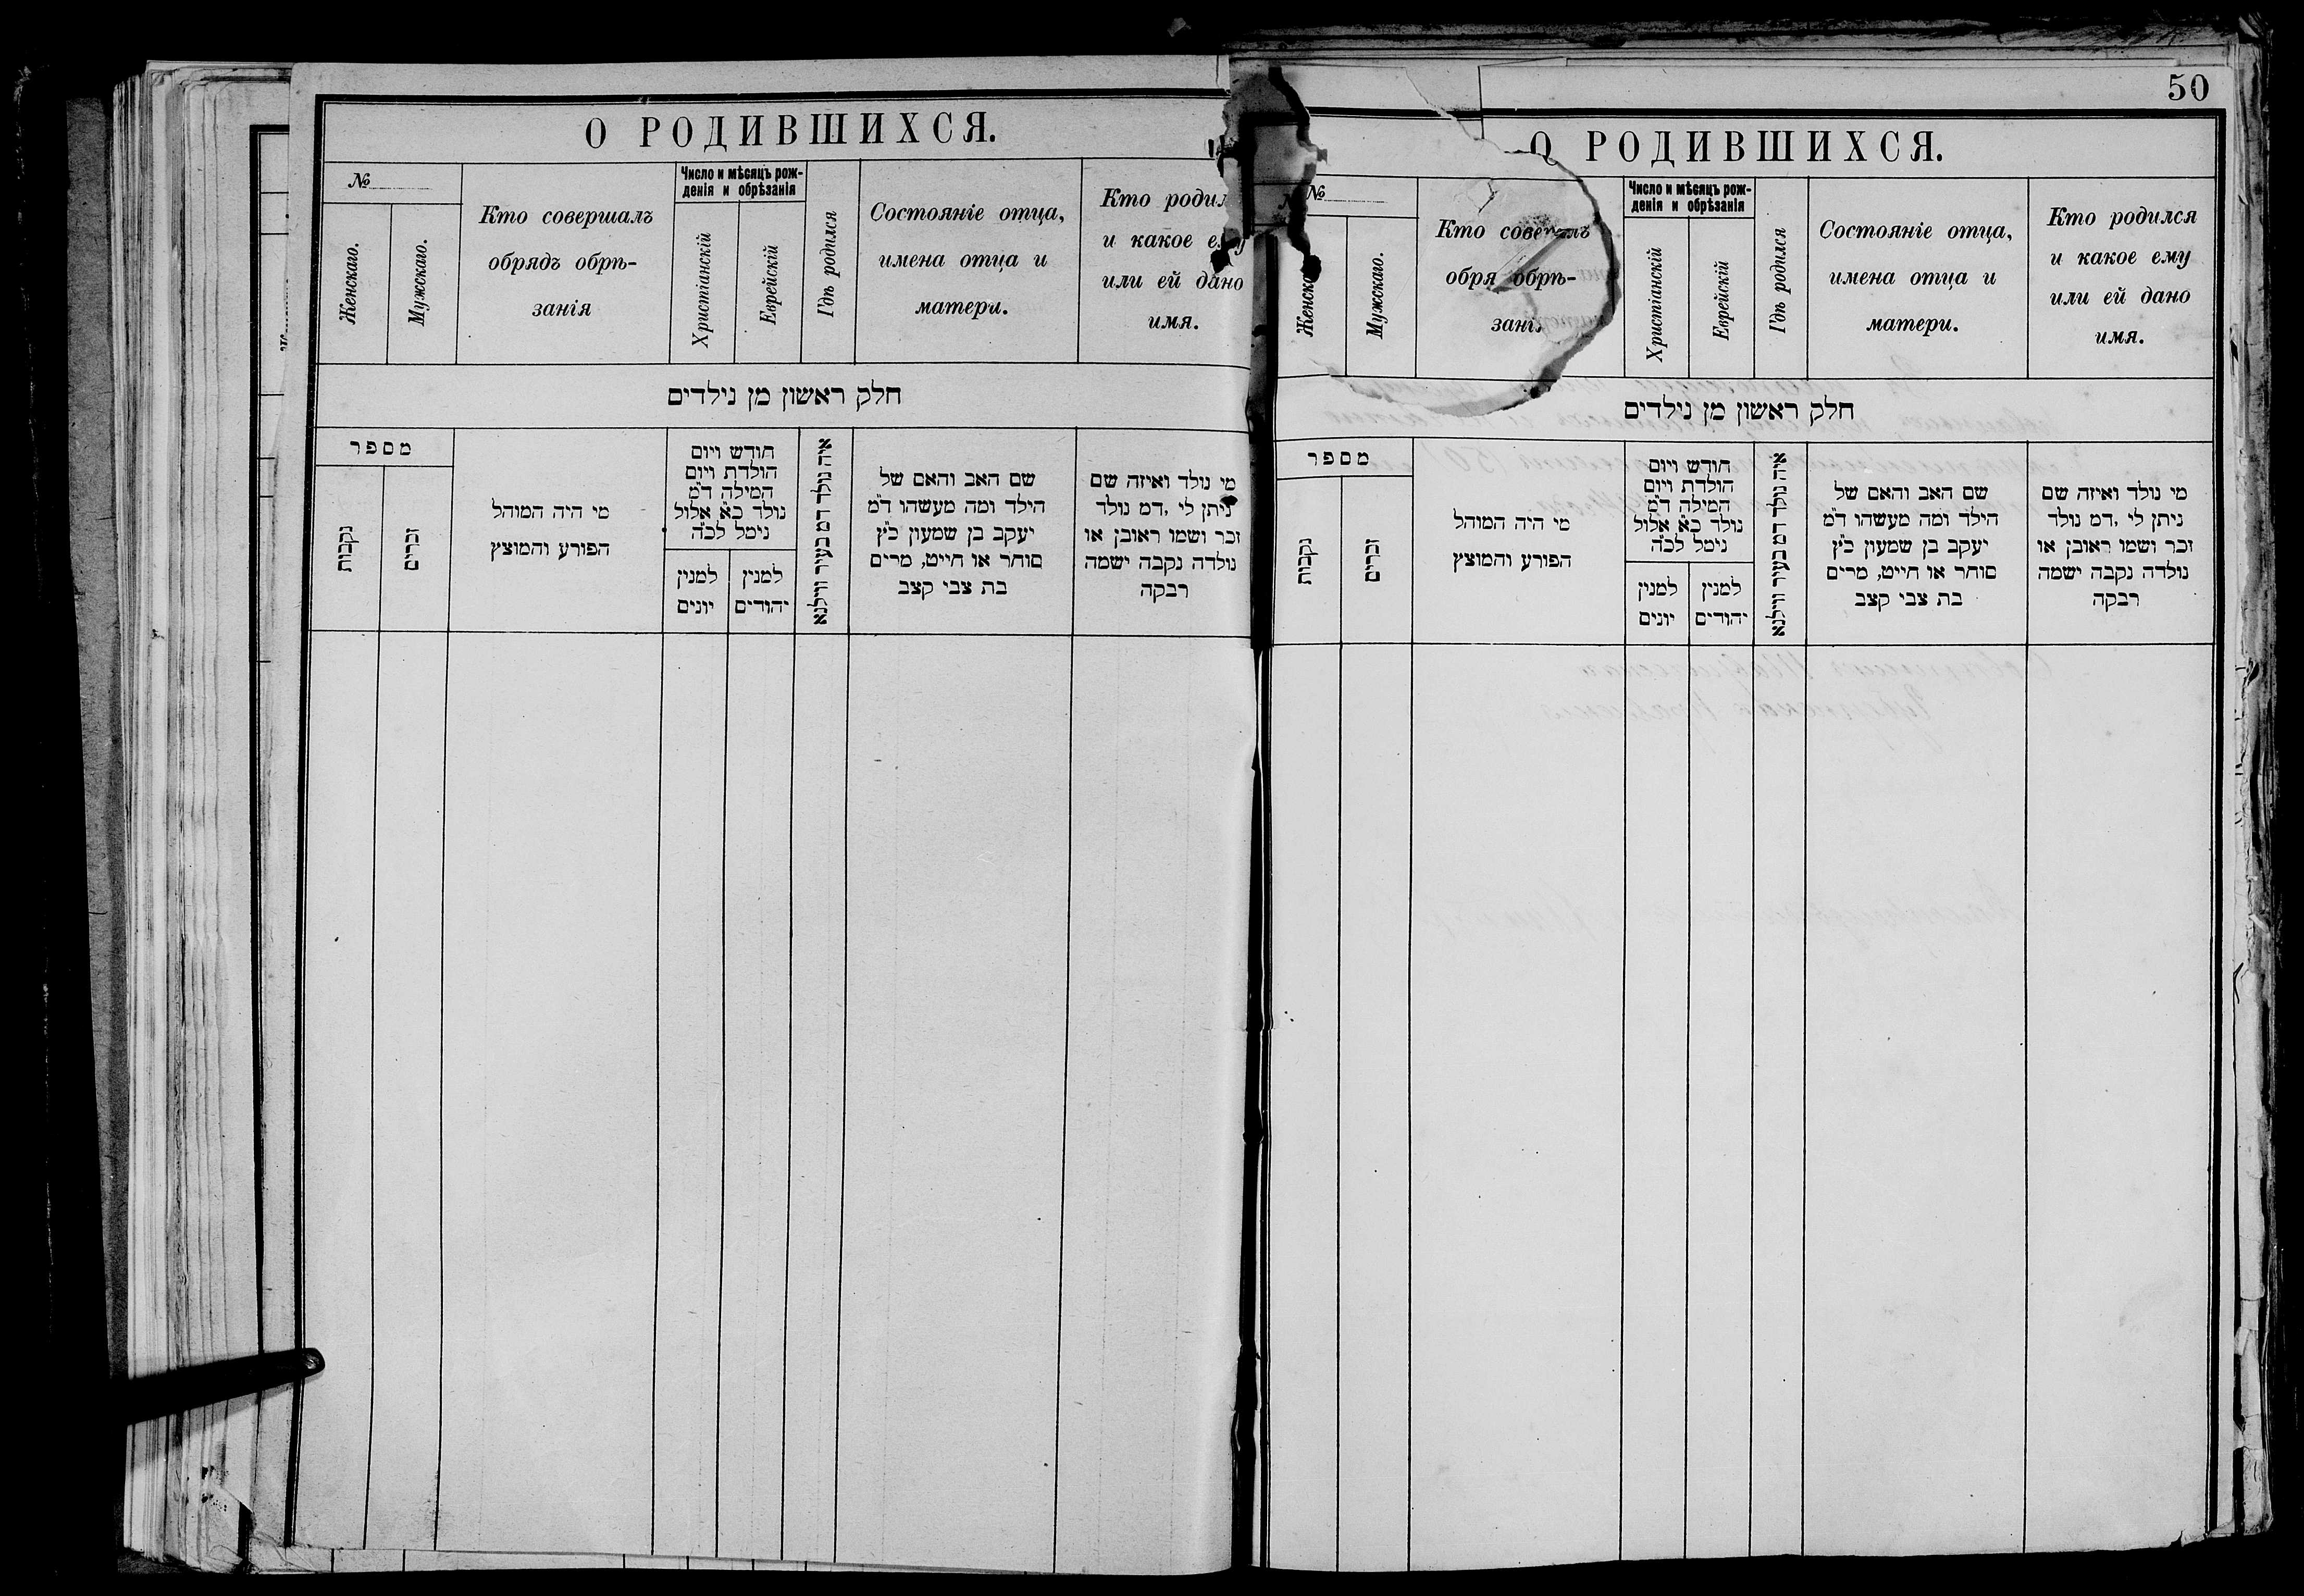 О РОДИВШИХСЯ.
№
Женскаго.
Мужскаго.
Кто совершалъ
обрядъ обрѣ-
занія
Число и мѣсяцъ рож-
денія и обрѣзанія
Христіанскій
Еврейскій
Гдѣ родился
Состояніе отца,
имена отца и
матери.
Кто родил
и какое ему
или ей дано
имя.
חלק ראשון מן נילדים
מספר
נקבות
זכרים
מי היה המוהל
הפורע והמוצץ
חודש ויום
הולדת ויום
המילה ד״מ
נולד כ״א אלול
נימל לכ״ה
למנין
יונים
למנין
יהודים
איה נולד דמ בעיר ווילנא
שם האב והאם של
הילד ומה מעשהו ד״מ
יעקב בן שמעון כ״ץ
סוחר או חייט, מרים
בת צבי קצב
מי נולד ואיזה שם
ניתן לי, דמ נולד
זכר ושמו ראובן או
נולדה נקבה ישמה
רבקה
50
О РОДИВШИХСЯ.
№
Женска
Мужскаго.
Кто соверш лъ
обря обрѣ-
зані
Число и мѣсяцъ рож-
денія и обрѣзанія
Христіанскій
Еврейскій
Гдѣ родился
Состояніе отца,
имена отца и
матери.
Кто родился
и какое ему
или ей дано
имя.
חלק ראשון מן נילדים
מספר
נקבות
זכרים
מי היה המוהל
הפורע והמוצץ
חודש ויום
הולדת ויום
המילה ד״מ
נולד כ״א אלול
נימל לכ״ה
למנין
יונים
למנין
יהודים
איה נולד דמ בעיר ווילנא
שם האב והאם של
הילד ומה מעשהו ד״מ
יעקב בן שמעון כ״ץ
סוחר או חייט, מרים
בת צבי קצב
מי נולד ואיזה שם
ניתן לי, דמ נולד
זכר ושמו ראובן או
נולדה נקבה ישמה
רבקה